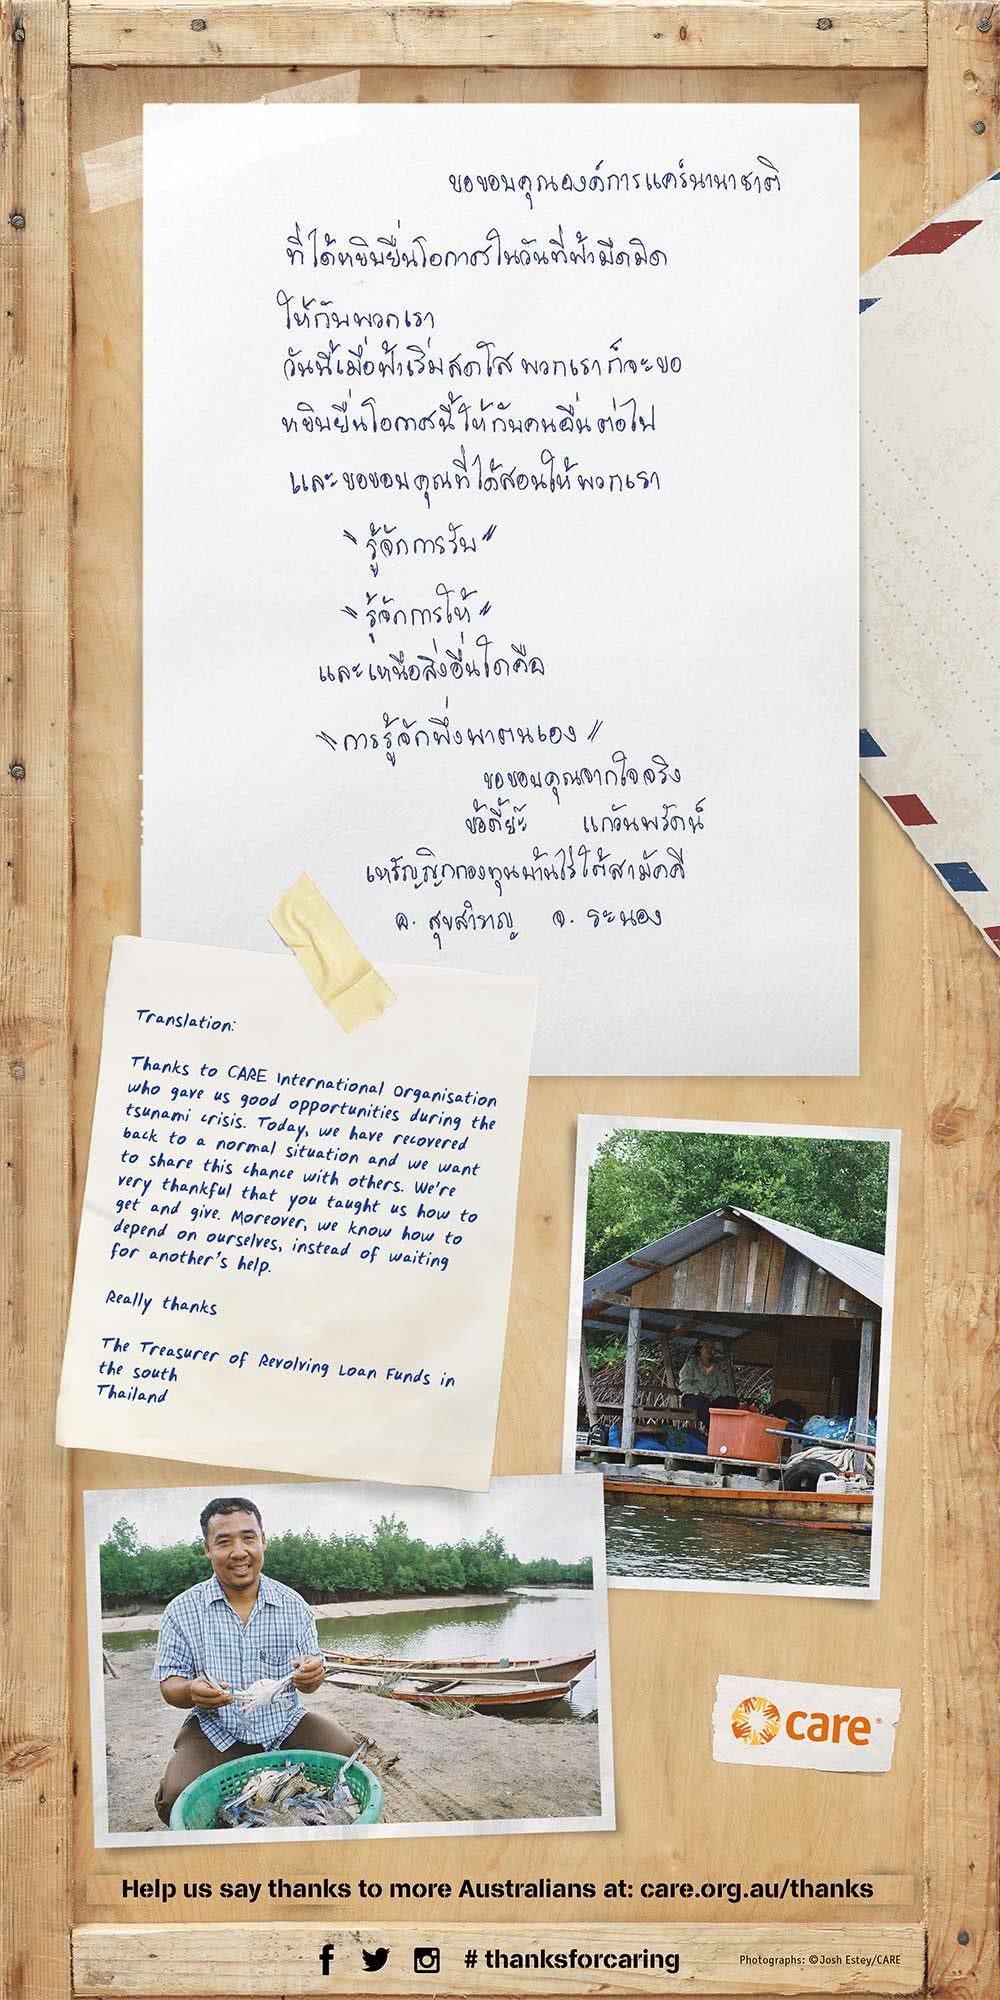 ขอขอบคุณองค์การแคร์นานาชาติ
ที่ได้หยิบยื่นโอกาสในวันที่ฟ้ามืดมิด
ให้กับพวกเรา
วันนี้เมื่อฟ้าเริ่มสดใส พวกเราก็จะขอ
หยิบยื่นโอกาสนี้ให้กับคนอื่นต่อไป
และขอขอบคุณที่ได้สอนให้พวกเรา
"รู้จักการรับ"
"รู้จักการให้"
และเหนือสิ่งอื่นใดคือ
"การรู้จักพึ่งพาตนเอง"
ขอขอบคุณจากใจจริง
แกวันพรัตน์
เหรัญญิกกองทุนบ้านไร่ใต้สามัคคี
อ. สุขสำราญ จ. ระนอง
Translation:
Thanks to CARE International Organisation
who gave us good opportunities during the
tsunami crisis. Today, we have recovered
back to a normal situation and we want
to share this chance with others. We're
very thankful that you taught us how to
get and give. Moreover, we know how to
depend on ourselves, instead of waiting
for another's help.
Really thanks
The Treasurer of Revolving Loan Funds in
the south
Thailand
care®
Help us say thanks to more Australians at: care.org.au/thanks
# thanksforcaring
Photographs: ©Josh Estey/CARE